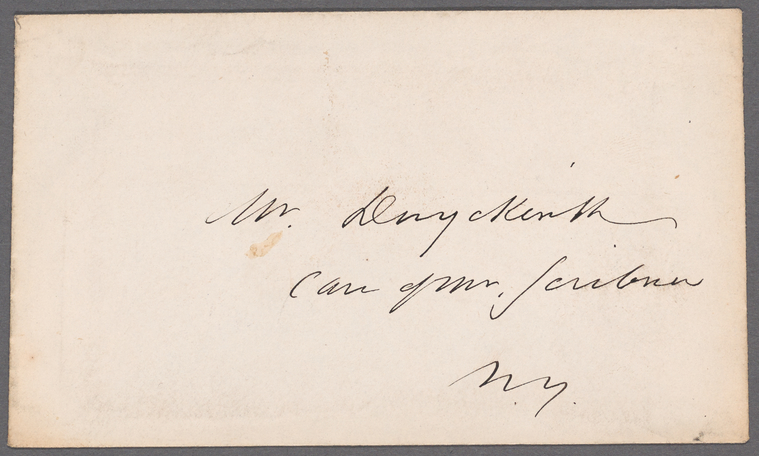 Mr. Duyckinck
Care of Mr. Scribner
N.Y.